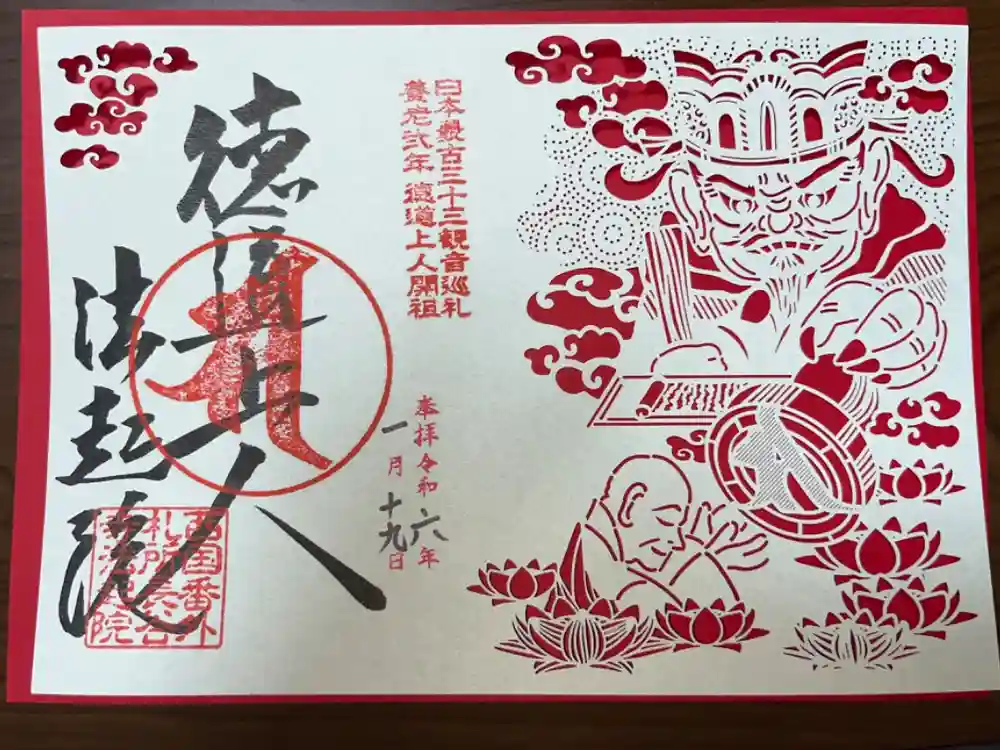 日本最古三十三観音巡礼
養老弐年 徳道上人開祖
奉拝令和六年
一月十九日
徳道上人
法起院
西国番外
札所長谷
法起院